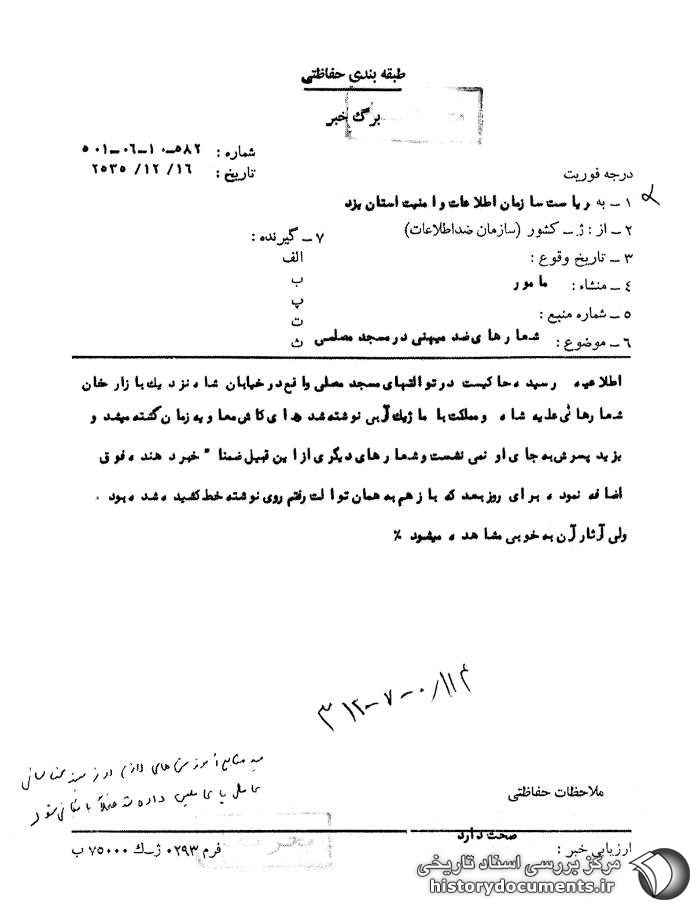 طبقه بندی حفاظتی
برگ خبر
شماره : ۵۸۲-۱۰-۰۶-۵۰۱
تاریخ : ۱۶/ ۱۲/ ۲۵۳۵
درجه فوریت
۱ - به ریاست سازمان اطلاعات و امنیت استان یزد
۲ - از : ژ - کشور (سازمان ضداطلاعات)
۳ - تاریخ وقوع :
۴ - منشاء : مامور
۵ - شماره منبع :
۶ - موضوع : شعارهای ضد میهنی در مسجد مصلسی
۷ - گیرنده :
الف
ب
پ
ت
ث
اطلاعیه رسیده حاکیست در توالتهای مسجد مصلی واقع در خیابان شاه نزدیك بازار خان
شعارهائی علیه شاه و مملکت با ماژیك آبی نوشته شده ای کاش معاویه زمان کشته میشد و
یزید پسرش به جای او نمی نشست و شعارهای دیگری از این قبیل ضمنا" خبر دهنده فوق
اضافه نموده برای روز بعد که باز هم به همان توالت رفتم روی نوشته خط کشیده شده بود .
ولی آثار آن به خوبی مشاهده میشود ٪
۳۱۲-۷-۰/۱۱۴
ملاحظات حفاظتی
صحت دارد
ارزیابی خبر :
فرم ۰۲۹۳ ژ-ك ۷۵۰۰۰ ب
مرکز بررسی اسناد تاریخی
historydocuments.ir